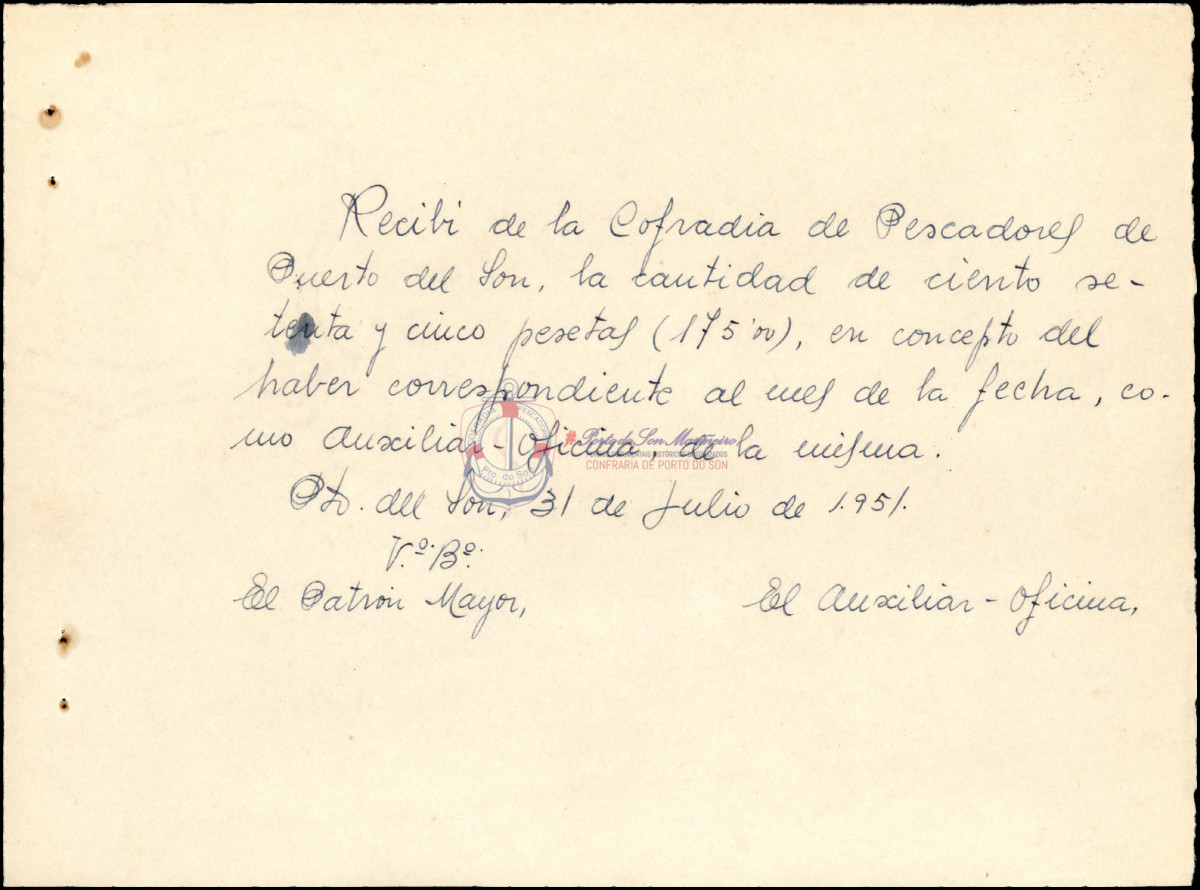 Recibi de la Cofradia de Pescadores de
Puerto del Son, la cantidad de ciento se-
tenta y cinco pesetas (175'00), en concepto del
haber correspondiente al mes de la fecha, co-
mo Auxiliar-Oficina, de la misma.
#Porto do Son Mariñeiro
CONFRARÍA DE PORTO DO SON
Pto. do Son
Pto. del Son, 31 de Julio de 1.951.
V.º B.º
El Patrón Mayor,
El Auxiliar-Oficina,